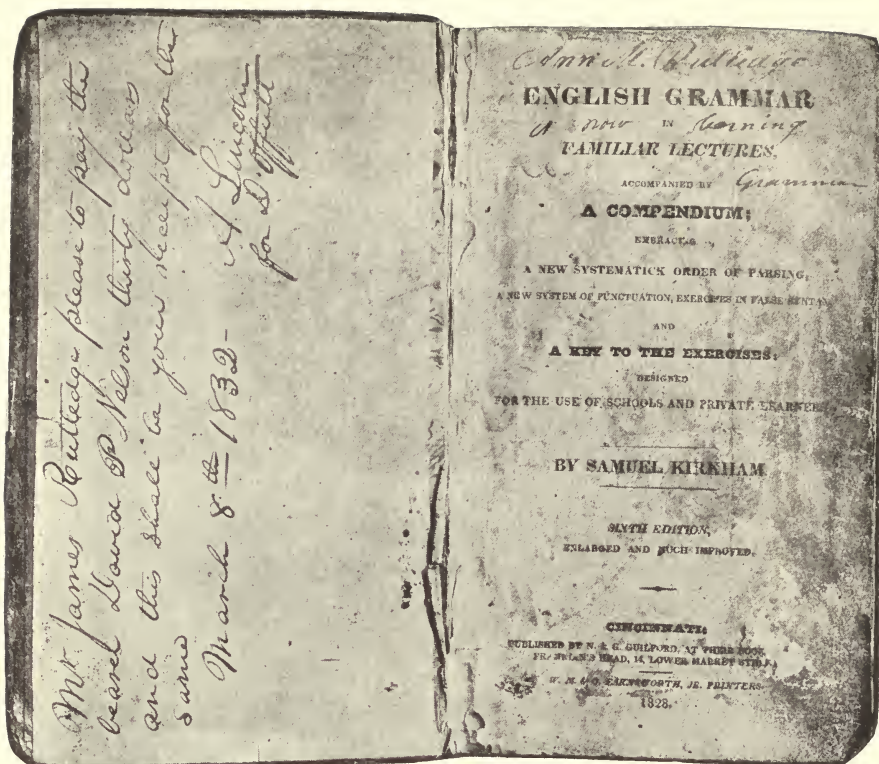 Mr James Rutledge please to pay the
bearer David P Nelson thirty dollars
and this shall be your receipt for the
same
March 8th 1832 -
A Lincoln
for D Offutt
Ann M. Rutledge
ENGLISH GRAMMAR
is now IN learning
FAMILIAR LECTURES,
ACCOMPANIED BY Grammar
A COMPENDIUM;
EMBRACING
A NEW SYSTEMATICK ORDER OF PARSING,
A NEW SYSTEM OF PUNCTUATION, EXERCISES IN FALSE SYNTAX,
AND
A KEY TO THE EXERCISES:
DESIGNED
FOR THE USE OF SCHOOLS AND PRIVATE LEARNERS
BY SAMUEL KIRKHAM
SIXTH EDITION,
ENLARGED AND MUCH IMPROVED.
CINCINNATI:
PUBLISHED BY N. & G. GUILFORD, AT THEIR BOOK
FRANKLIN'S HEAD, 14, LOWER MARKET
W. M. & O. FARNSWORTH, JR. PRINTERS.
1828.